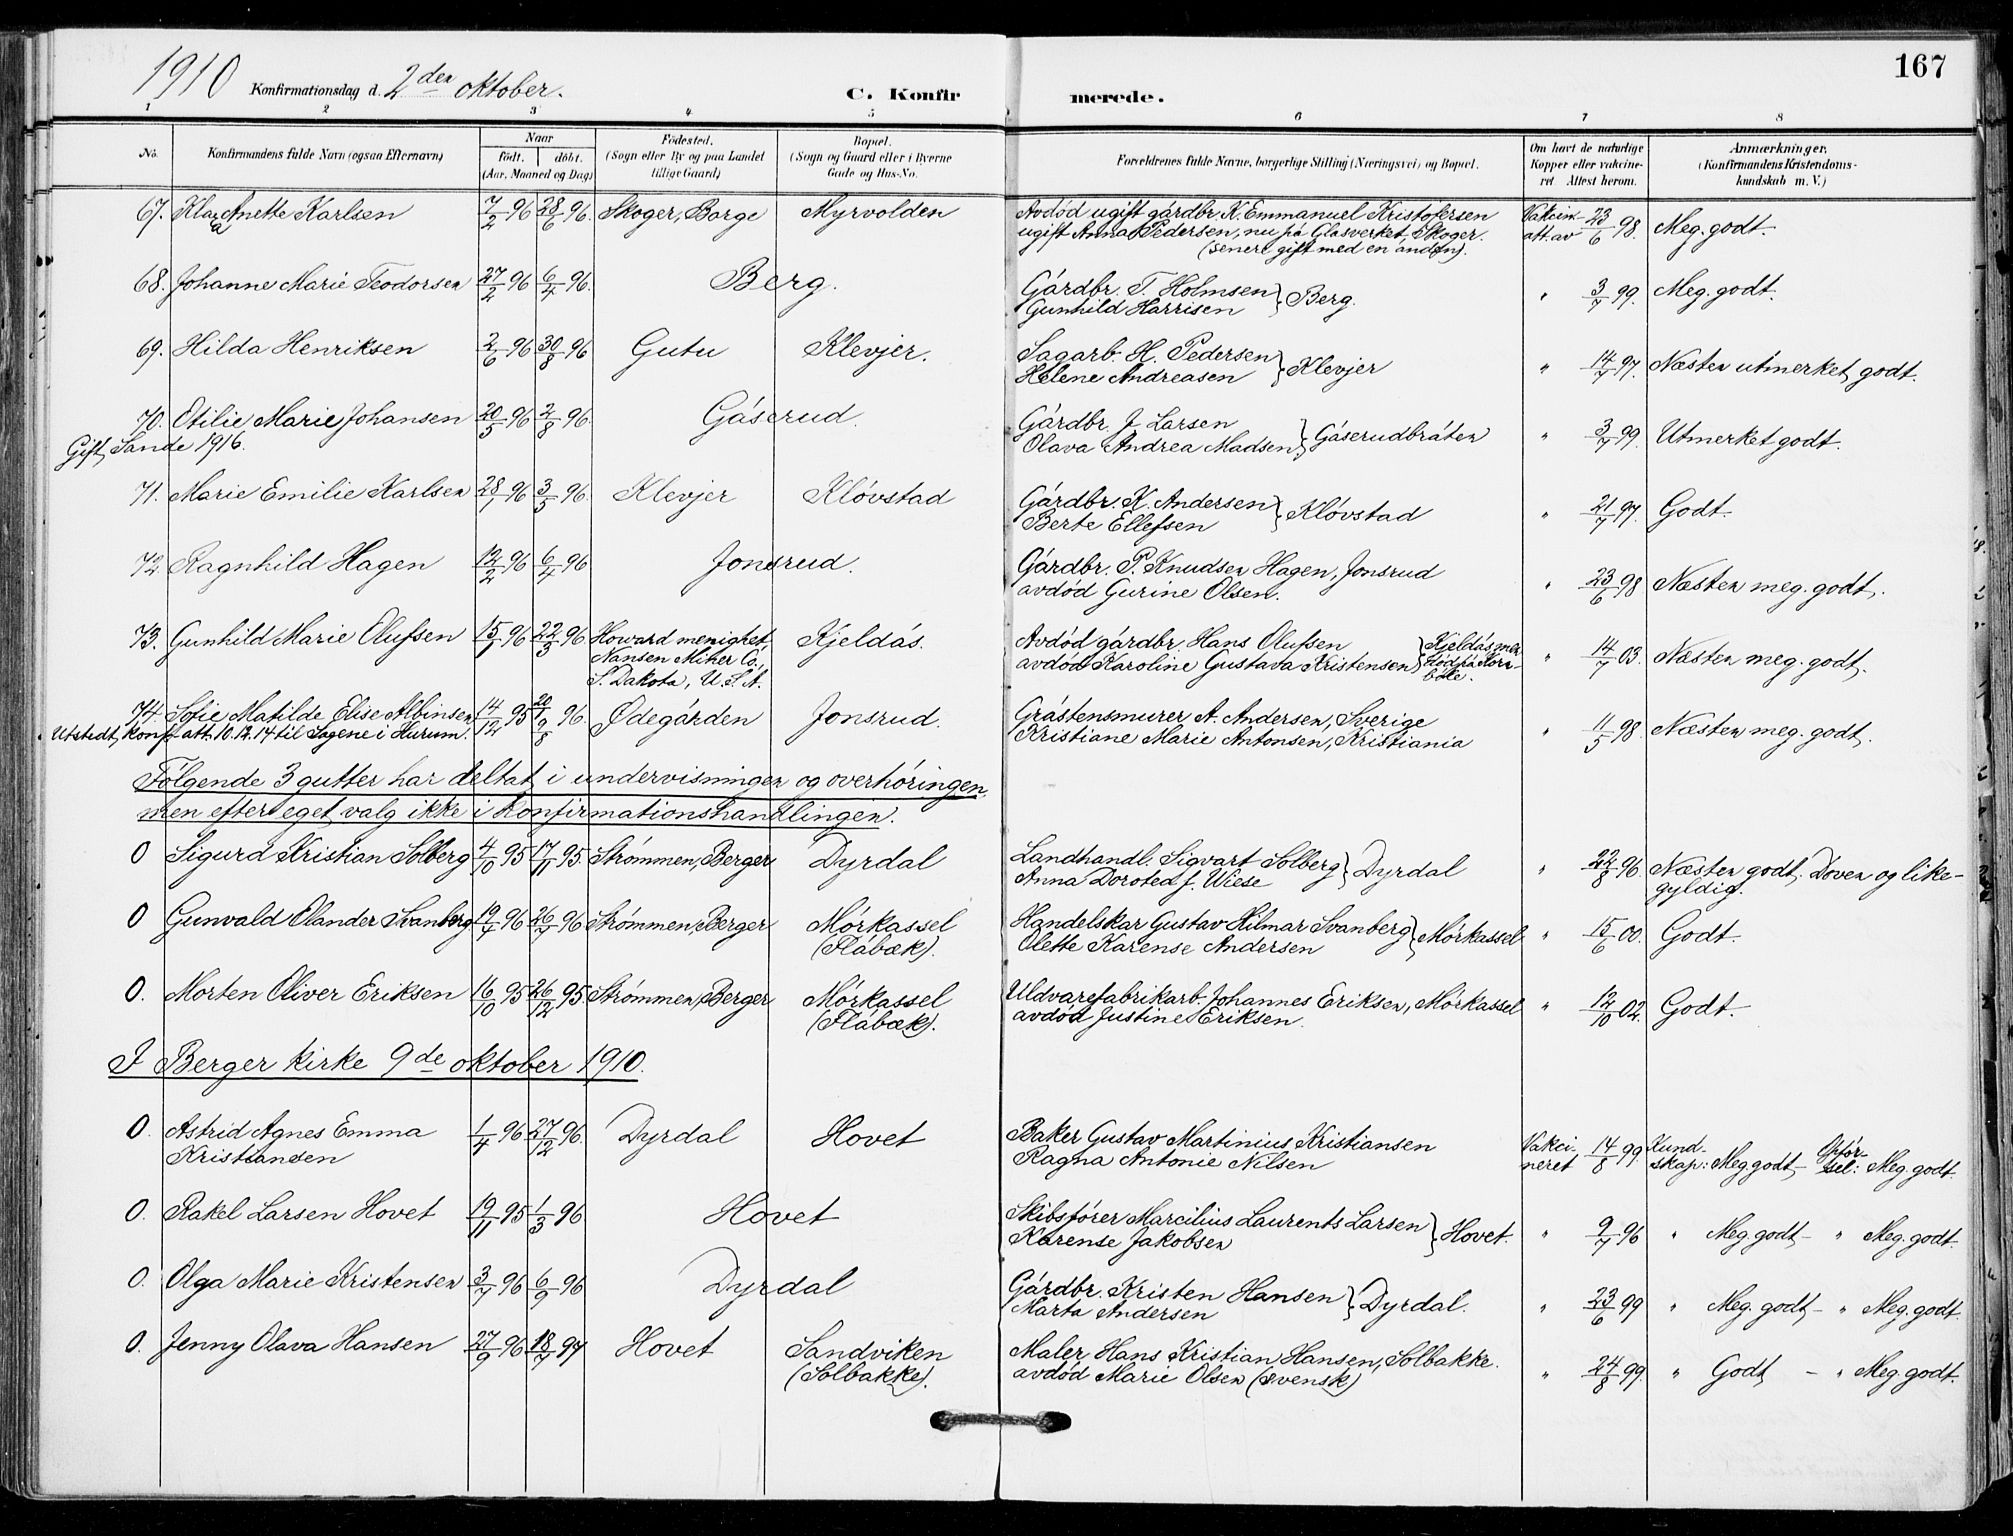 167
1910 Konfirmationsdag d. 2den oktober. C. Konfirmerede.
1 2 3 4 5 6 7 8
No. Konfirmandens fulde Navn (ogsaa Efternavn) Naar født. døbt. (Aar, Maaned og Dag) Fødested. (Sogn eller By og paa Landet tillige Gaard) Bopæl. (Sogn og Gaard eller i Byerne Gade og Hus-No. Forældrenes fulde Navne, borgerlige Stilling (Næringsvei) og Bopæl. Om havt de naturlige Kopper eller vakcineret. Attest herom. Anmærkninger. (Konfirmandens Kristendomskundskab m. V.)
67. Klara Anette Karlsen 7/2 96 28/6 96. Skoger, Borge Myrvolden Avdød ugift gårdbr. K. Emmanuel Kristofersen Vakcin. att. av 23/6 98. Meg. godt.
ugift Anna Pedersen, nu på Glasverket Skoger.
(senere gift med en anden).
68. Johanne Marie Teodorsen 27/2 96 6/4 96. Berg. Gårdbr. T. Holmsen } Berg. " 3/7 99. Meg. godt.
Gunhild Harrisen
69. Hilda Henriksen 2/6 96 30/8 96 Gutu Klevjer. Sagarb. H. Pedersen } Klevjer " 14/7 97. Næsten utmerket godt.
Helene Andreasen
70. Otilie Marie Johansen 20/5 96 2/8 96. Gåserud. Gårdbr. J. Larsen } Gåserudbråten " 3/7 99. Utmerket godt.
Gift, Sande 1916. Olava Andrea Madsen
71. Marie Emilie Karlsen 28/1 96 3/5 96. Klevjer Kløvstad Gårdbr. K. Andersen } Kløvstad " 21/7 97. Godt.
Berte Ellefsen
72. Ragnhild Hagen 12/2 96 6/4 96 Jonsrud. Gårdbr. P. Knudsen Hagen, Jonsrud " 23/6 98 Næsten meg. godt.
avdød Gurine Olsen.
73. Gunhild Marie Olufsen 15/1 96 22/3 96 Howard menighet, Kjeldås. Avdød gårdbr. Hans Olufsen } Kjeldås, men " 14/7 03. Næsten meg. godt.
Nansen Miner Co., avdød Karoline Gustava Kristensen
S. Dakota, U.S.A.
74. Sofie Matilde Elise Albinsen 14/12 95 20/9 96. Ødegården Jonsrud. Gråstensmurer A. Andersen, Sverige " 11/5 98. Næsten meg. godt.
Utstedt konf. att. 10.12.14 til Sogene i Hurum. Kristiane Marie Antonsen, Kristiania
Følgende 3 gutter har deltat i undervisningen og overhøringen,
men efter eget valg ikke i konfirmationshandlingen.
0 Sigurd Kristian Solberg 4/10 95 17/11 95. Strømmen, Berger Dyrdal Landhandl. Sigvart Solberg } Dyrdal " 22/8 96. Næsten godt. Doven og like-
Anna Dorotea f. Wiese gyldig.
0 Gunvald Elander Svanberg 19/4 96 26/7 96 Strømmen, Berger Mørkassel Handelskar Gustav Hilmar Svanberg } Mørkassel " 15/6 00. Godt.
(Flåbæk). Olette Karense Andersen
0. Morten Oliver Eriksen 16/10 95 26/12 95 Strømmen, Berger Mørkassel Uldvarefabrikarb. Johannes Eriksen, Mørkassel " 12/10 02. Godt.
(Flåbæk). avdød Justine Eriksen.
I Berger kirke 9de oktober 1910.
0. Astrid Agnes Emma 1/4 96 27/12 96. Dyrdal Hovet Baker Gustav Martinius Kristiansen Vakcineret 14/8 99 Kundskap: Meg. godt – Opførsel: Meg. godt.
Kristiansen Ragna Antonie Nilsen
0. Rakel Larsen Hovet 19/11 95 1/3 96 Hovet Skibsfører Marcilius Laurents Larsen } Hovet. " 9/7 96 " Meg. godt – " Meg. godt.
Karense Jakobsen
0. Olga Marie Kristensen 3/7 96 6/9 96 Dyrdal Gårdbr. Kristen Hansen } Dyrdal. " 23/6 99 " Meg. godt – " Meg. godt.
Marta Andersen
0. Jenny Olava Hansen 27/9 96 18/7 97 Hovet Sandviken Maler Hans Kristian Hansen, Solbakke. " 24/8 99. " Godt – " Meg. godt.
(Solbakke). avdød Marie Olsen (svensk)